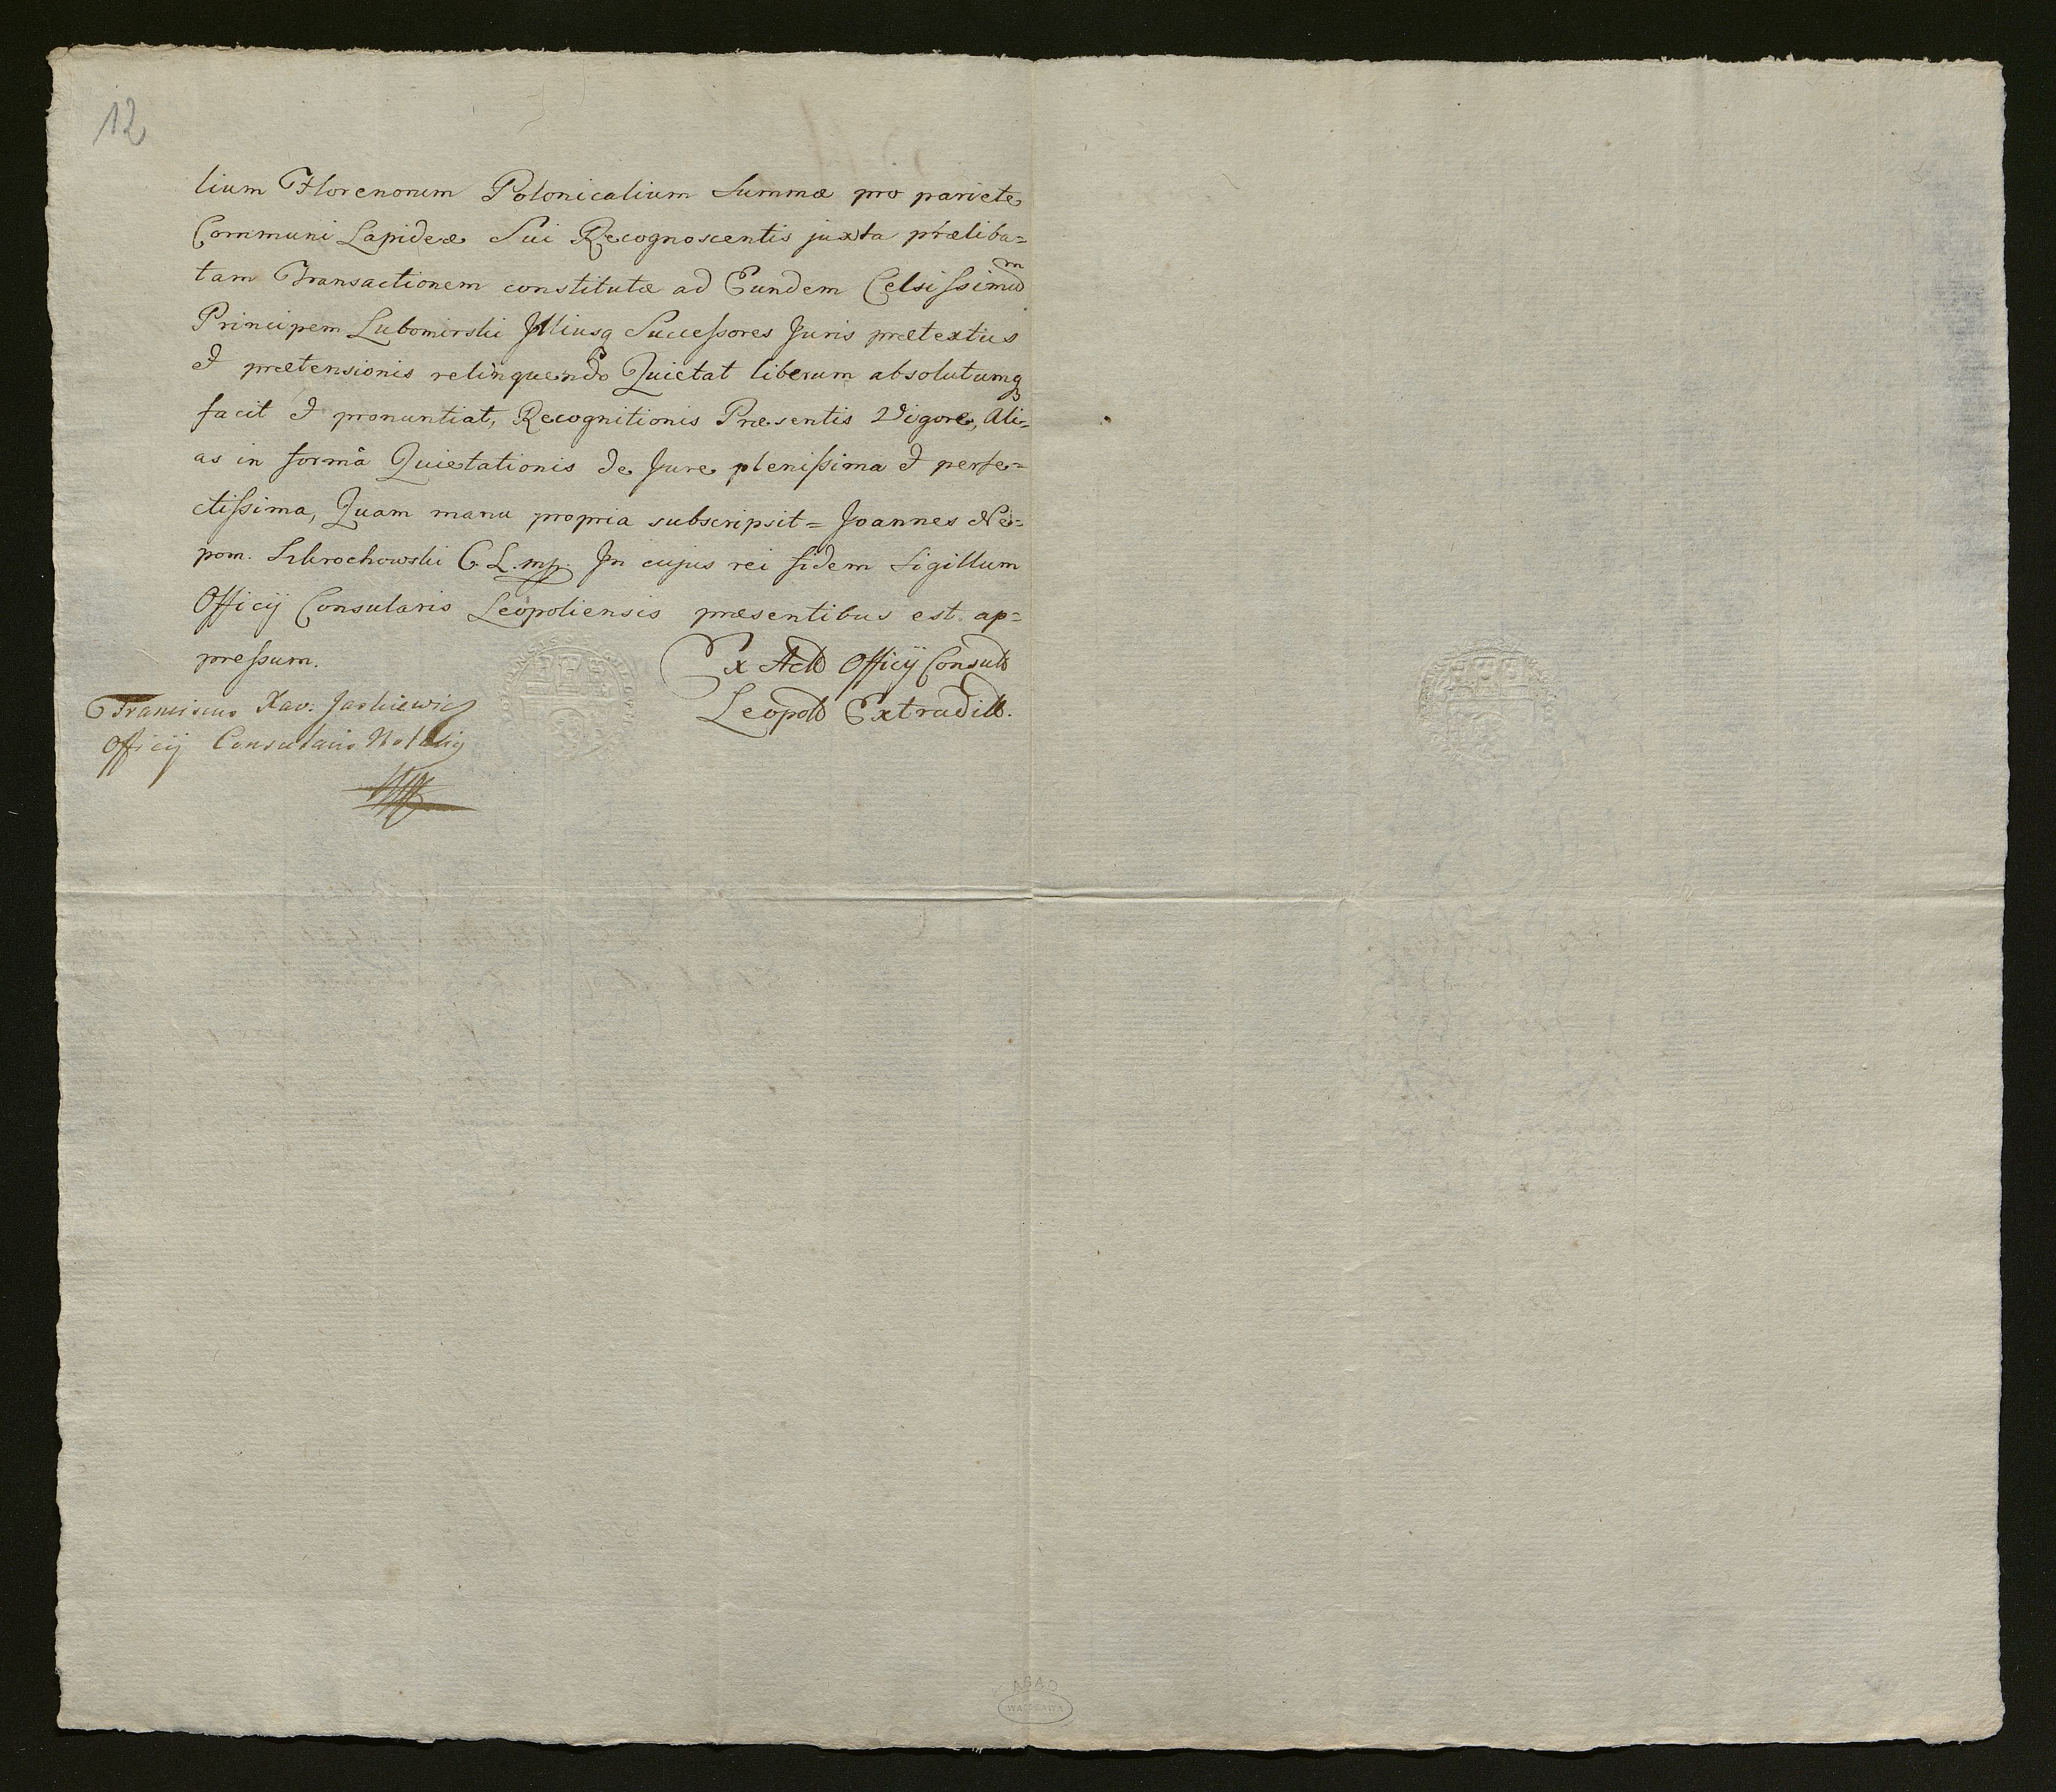 12
lium Florenorum Polonicalium Summæ pro pariete
Communi Lapideæ Sui Recognoscentis juxta præliba=
tam Transactionem constitutæ ad Eundem Celsissimum
Principem Lubomirski Jlliusq Successores Juris prætextus
et prætensionis relinquendo Quietat liberum absolutumq
facit et pronuntiat, Recognitionis Præsentis Vigore, Ali=
as in formâ Quietationis de Jure plenissima et perfe=
ctissima, Quam manu propria subscripsit = Joannes Ne=
pom. C. L. mp. Jn cujus rei fidem Sigillum
Officij Consularis Leopoliensis præsentibus est ap=
pressum.
Ex Actis Officij Consul
Leopol Extradit.
Franciscus Xav: Jaskiewicz
Officij Consularis Not
AGAD
WARSZAWA